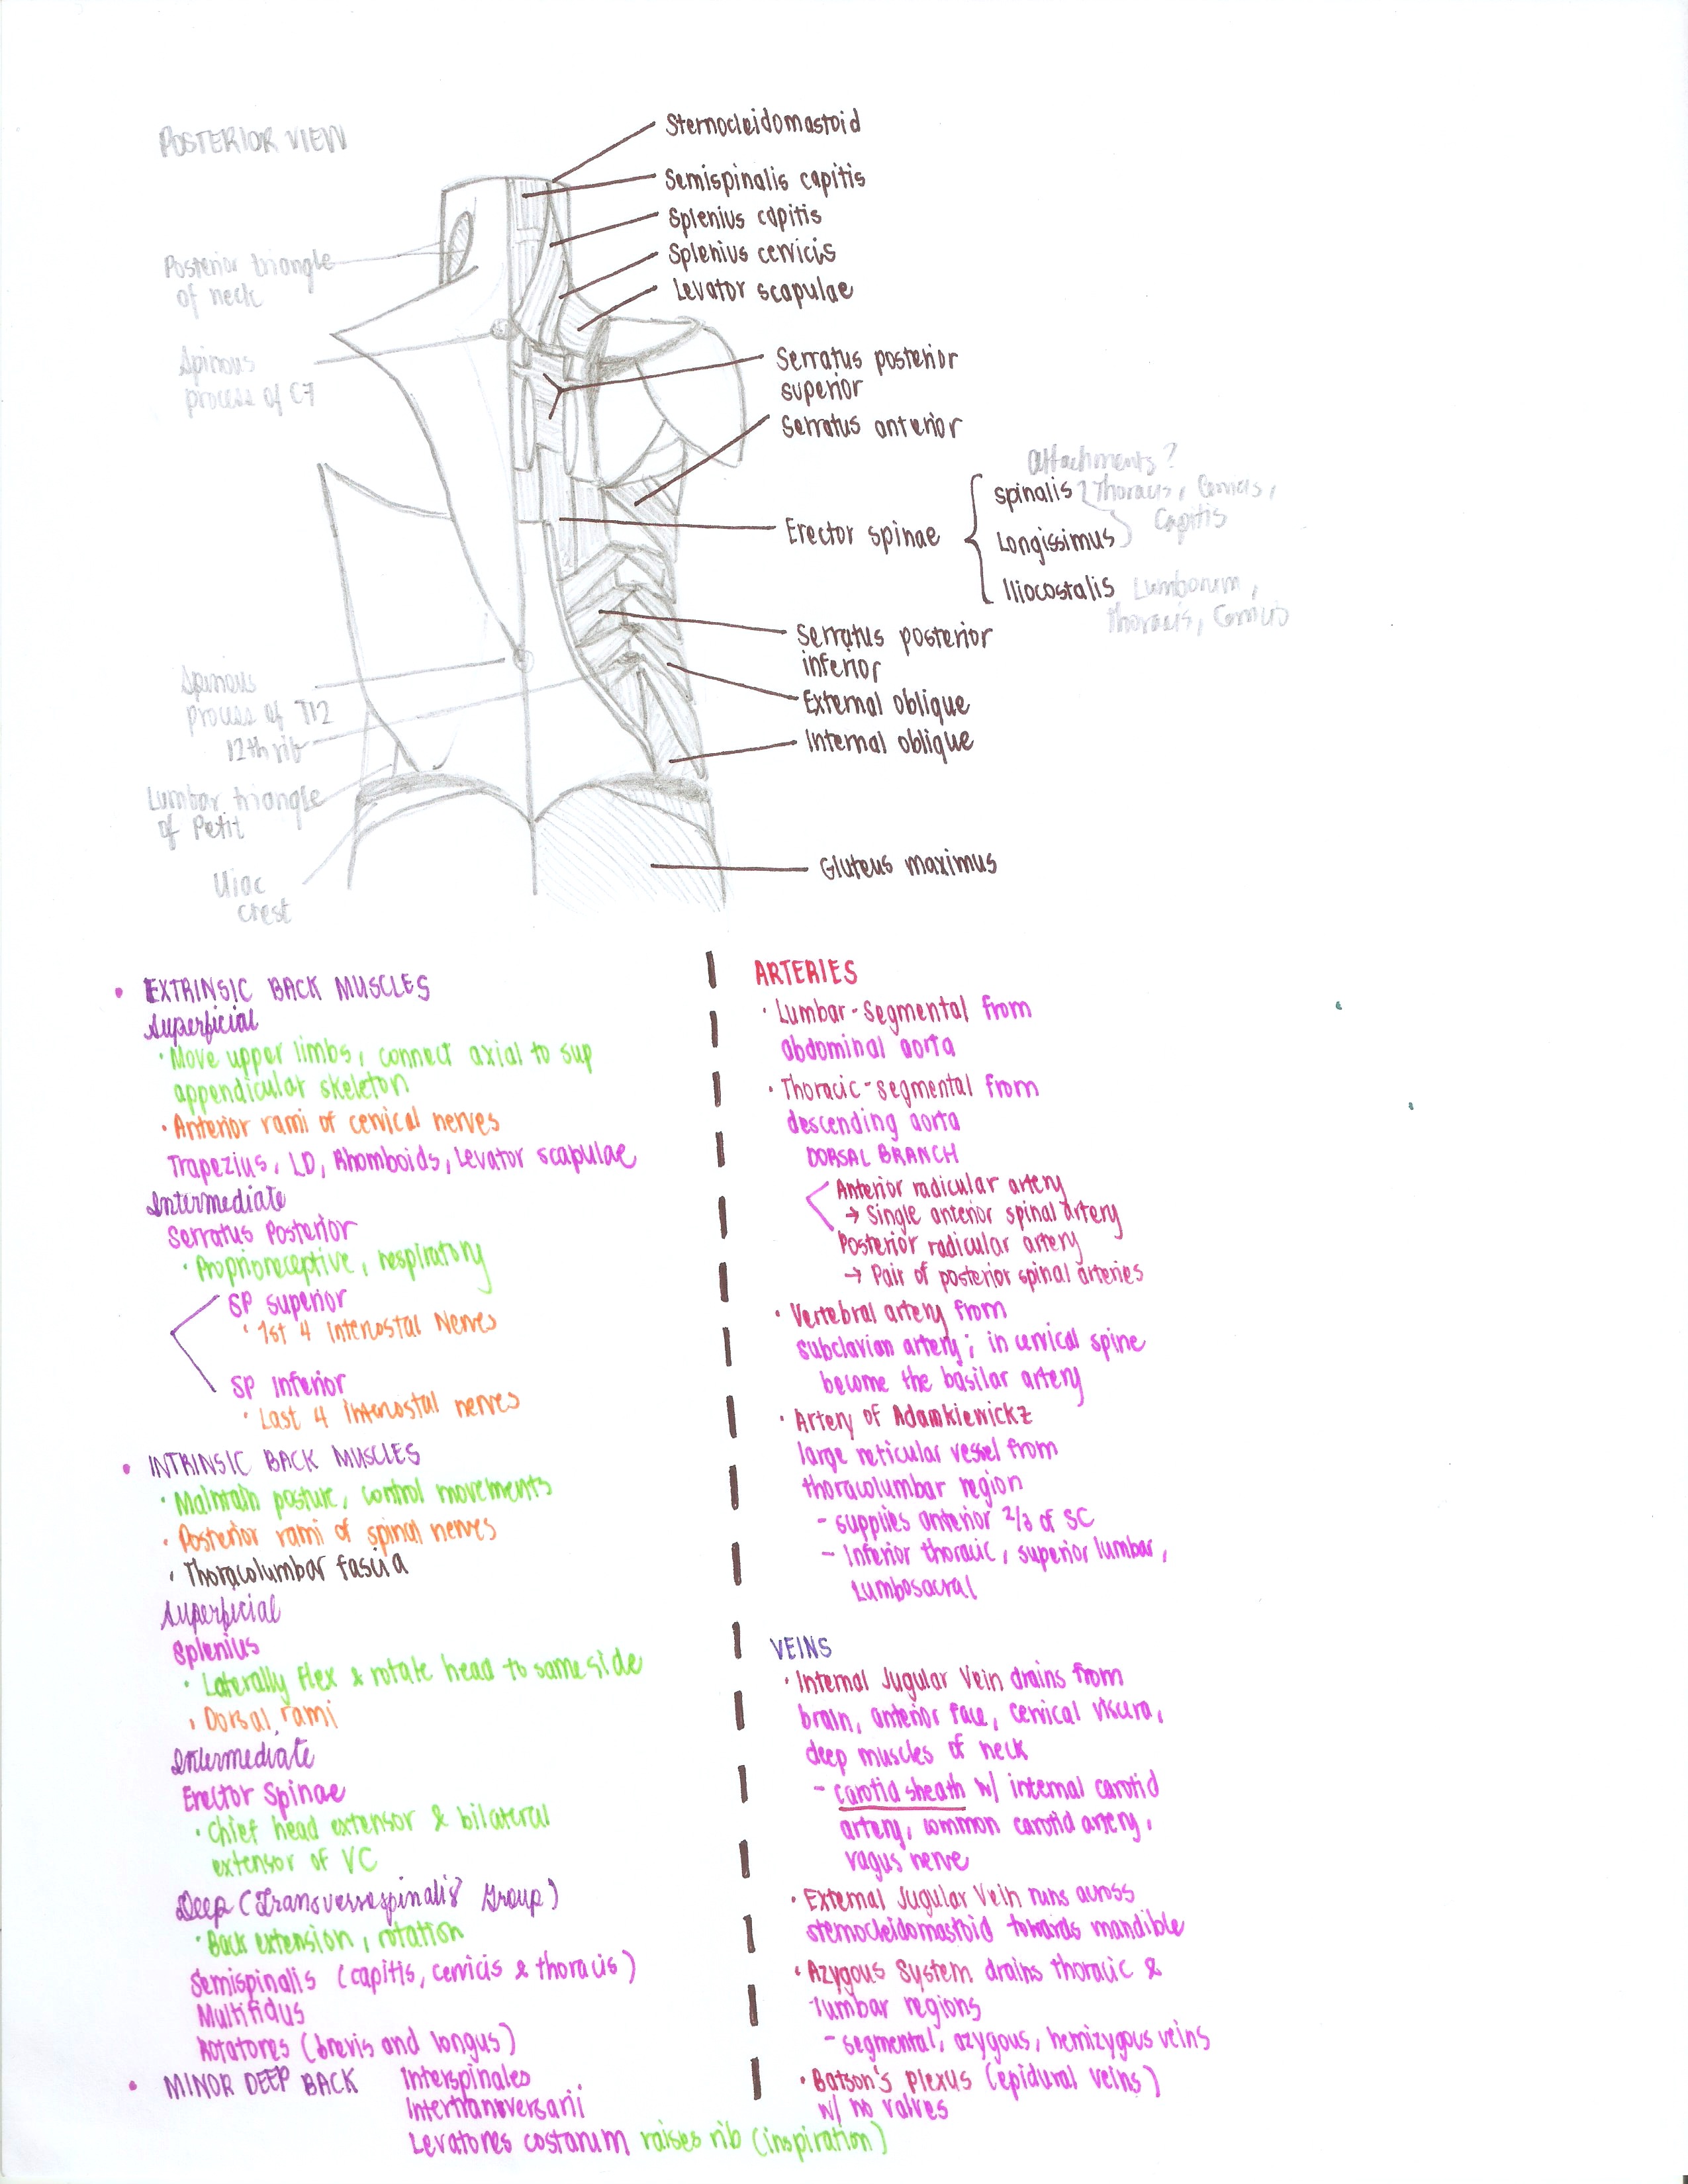 POSTERIOR VIEW
Sternocleidomastoid
Semispinalis capitis
Splenius capitis
Splenius cervicis
Levator scapulae
Posterior triangle
of neck
Spinous
process of C7
Serratus posterior
superior
Serratus anterior
Attachments?
Erector spinae
Spinalis
Thoracis, Cervicis,
Capitis
Longissimus
Iliocostalis
Lumborum,
thoracis, Cervicis
Serratus posterior
inferior
External oblique
Internal oblique
Spinous
process of T12
12th rib
Lumbar triangle
of Petit
Iliac
crest
Gluteus maximus
• EXTRINSIC BACK MUSCLES
Superficial
• Move upper limbs, connect axial to sup
appendicular skeleton
• Anterior rami of cervical nerves
Trapezius, LD, Rhomboids, Levator scapulae
Intermediate
Serratus Posterior
• Proprioreceptive, respiratory
SP superior
• 1st 4 Intercostal Nerves
SP Inferior
• Last 4 intercostal nerves
• INTRINSIC BACK MUSCLES
• Maintain posture, control movements
• Posterior rami of spinal nerves
• Thoracolumbar fascia
Superficial
Splenius
• Laterally flex & rotate head to same side
• Dorsal rami
Intermediate
Erector Spinae
• Chief head extensor & bilateral
extensor of VC
Deep (Transversospinalis Group)
• Back extension, rotation
Semispinalis (capitis, cervicis & thoracis)
Multifidus
Rotatores (brevis and longus)
• MINOR DEEP BACK Interspinales
Intertransversarii
Levatores costarum raises rib (inspiration)
ARTERIES
• Lumbar-Segmental from
abdominal aorta
• Thoracic-segmental from
descending aorta
DORSAL BRANCH
Anterior radicular artery
→ Single anterior spinal artery
Posterior radicular artery
→ Pair of posterior spinal arteries
• Vertebral artery from
subclavian artery; in cervical spine
become the basilar artery
• Artery of Adamkiewickz
large reticular vessel from
thoracolumbar region
- supplies anterior 2/3 of SC
- Inferior thoracic, superior lumbar,
Lumbosacral
VEINS
• Internal Jugular Vein drains from
brain, anterior face, cervical viscera,
deep muscles of neck
- carotid sheath w/ internal carotid
artery, common carotid artery,
vagus nerve
• External Jugular Vein runs across
sternocleidomastoid towards mandible
• Azygous System drains thoracic &
lumbar regions
- segmental, azygous, hemizygous veins
• Batson's plexus (epidural veins)
w/ no valves